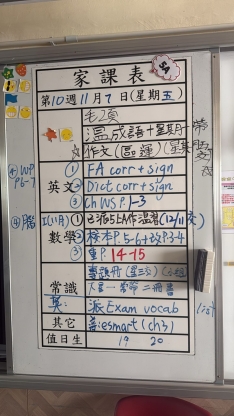 5A
家課表
第10週11月7日(星期五)
毛2頁
溫成語+星期一帶
作文(區運)(星期
④ WP P6-7
英文
① FA corr + sign
② Dict corr + sign
③ Ch WS P.1-3
④ 腦
I(1-月)
① 已派5上A作溫習(12/11交)
數學
② 樣本P.5-6+
③ 重P.14-15
常識
專題冊(星三交)
英:派Exam vocab list
其它
普:esmart(ch3)
值日生 19 20